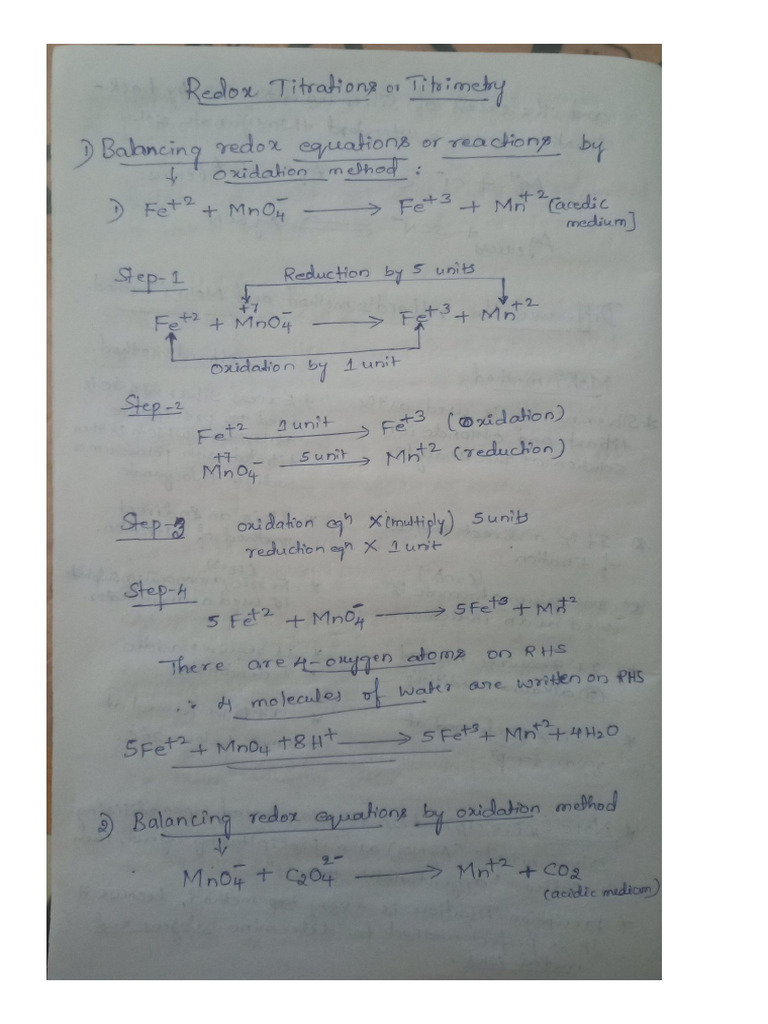 Redox Titrations or Titrimetry
1) Balancing redox equations or reactions by
↓ oxidation method :
1) Fe+2 + MnO4- ⟶ Fe+3 + Mn+2 [acedic
medium]
Step-1
Reduction by 5 units
+7
Fe+2 + MnO4- ⟶ Fe+3 + Mn+2
oxidation by 1 unit
Step-2
Fe+2 —1 unit→ Fe+3 (oxidation)
+7
MnO4- —5 unit→ Mn+2 (reduction)
Step-3 oxidation eqn X (multiply) 5 units
reduction eqn X 1 unit
Step-4
5 Fe+2 + MnO4- ⟶ 5Fe+3 + Mn+2
There are 4-oxygen atoms on RHS
∴ 4 molecules of water are written on RHS
5Fe+2 + MnO4 + 8H+ ⟶ 5Fe+3 + Mn+2 + 4H2O
2) Balancing redox equations by oxidation method
↓
MnO4- + C2O4 2- ⟶ Mn+2 + CO2
(acidic medium)